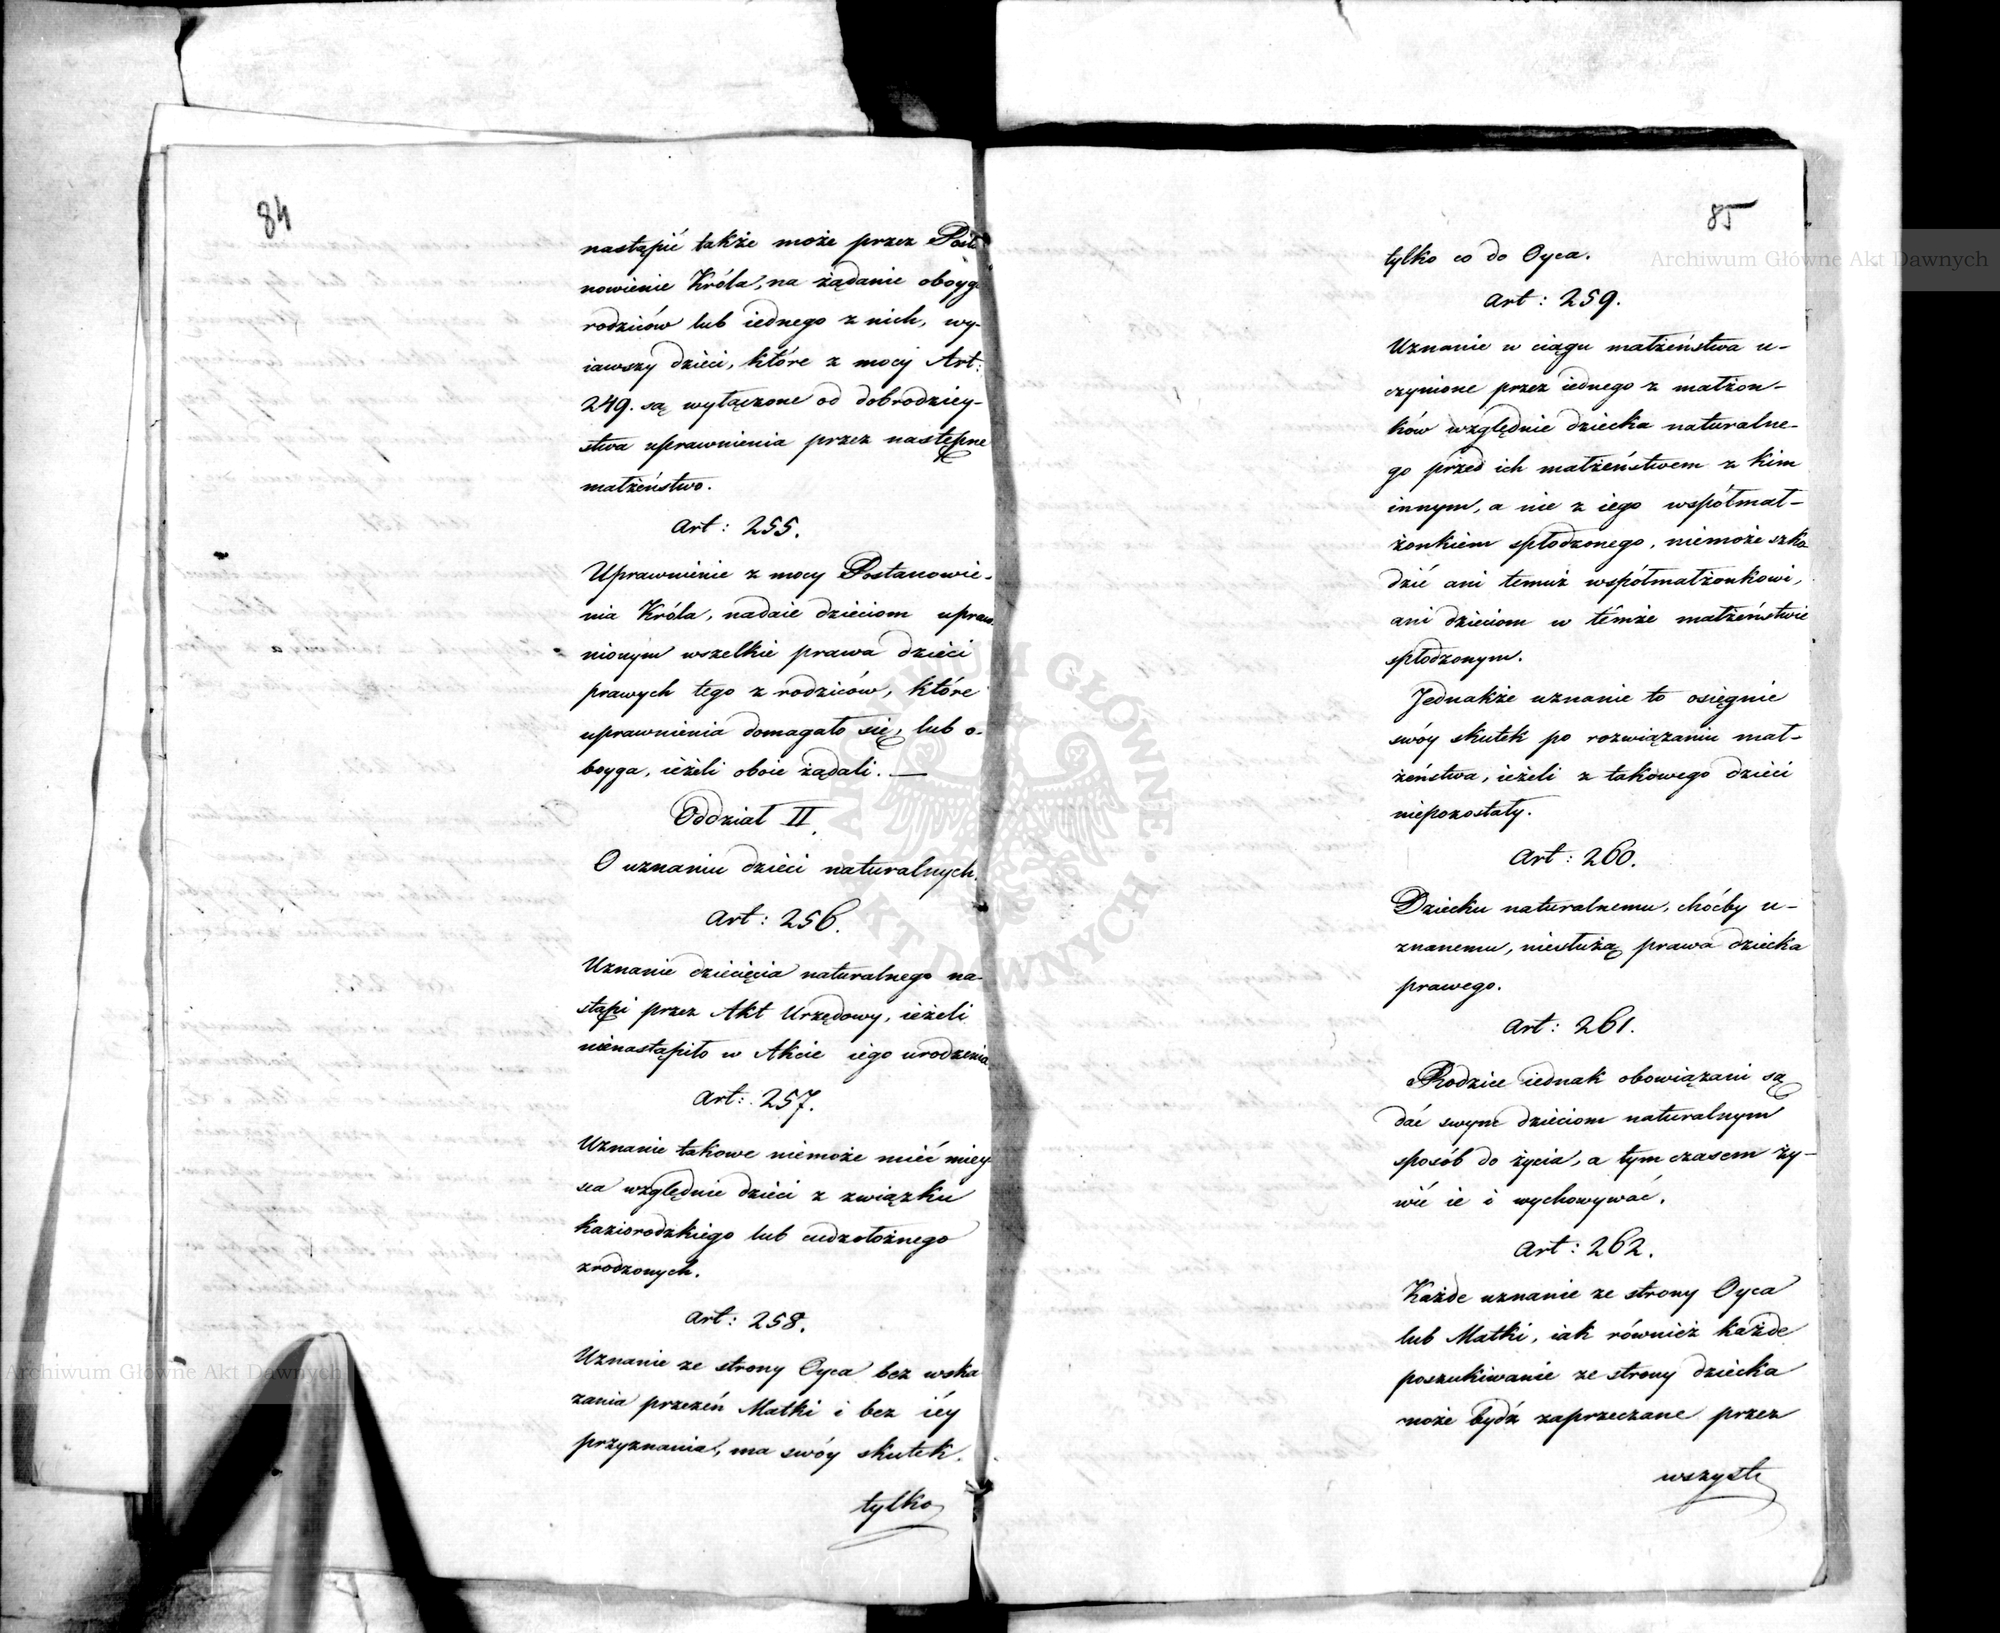 84
nastąpić także może przez Posta
nowienie Króla, na żądanie oboyga
rodziców lub iednego z nich, wy-
iąwszy dzieci, które z mocy Art:
249. są wyłączone od dobrodziey-
stwa uprawnienia przez następne
małżeństwo.
Art: 255.
Uprawnienie z mocy Postanowie-
nia Króla, nadaie dzieciom upraw
nionym wszelkie prawa dzieci
prawych tego z rodziców, które
uprawnienia domagało się, lub o-
boyga, ieżeli oboie żądali. —
Oddział II.
O uznaniu dzieci naturalnych.
Art: 256.
Uznanie dziecięcia naturalnego na-
stąpi przez Akt Urzędowy, ieżeli
nienastąpiło w Akcie iego urodzenia
Art: 257.
Uznanie takowe niemoże mieć miey
sca względnie dzieci z związku
kaziorodzkiego lub cudzołożnego
zrodzonych.
Art: 258.
Uznanie ze strony Oyca bez wska
zania przezeń Matki i bez iéy
przyznania, ma swóy skutek.
tylko
85
tylko co do Oyca.
Art: 259.
Uznanie w ciągu małżeństwa u-
czynione przez iednego z małżon-
ków względnie dziecka naturalne-
go przed ich małżeństwem z kim
innym, a nie z iego współmał-
żonkiem spłodzonego, niemoże szko
dzić ani temuż współmałżonkowi,
ani dzieciom w témże małżeństwie
spłodzonym.
Jednakże uznanie to osięgnie
swóy skutek po rozwiązaniu mał-
żeństwa, ieżeli z takowego dzieci
niepozostały.
Art: 260.
Dziecku naturalnemu, chóćby u-
znanemu, niesłużą prawa dziecka
prawego.
Art: 261.
Rodzice iednak obowiązani są
dać swym dzieciom naturalnym
sposób do życia, a tym czasem ży-
wić ie i wychowywać.
Art: 262.
Każde uznanie ze strony Oyca
lub Matki, iak również każde
poszukiwanie ze strony dziecka
może bydź zaprzeczane przez
wszystk
Archiwum Główne Akt Dawnych
Archiwum Główne Akt Dawnych
ARCHIWUM GŁÓWNE AKT DAWNYCH